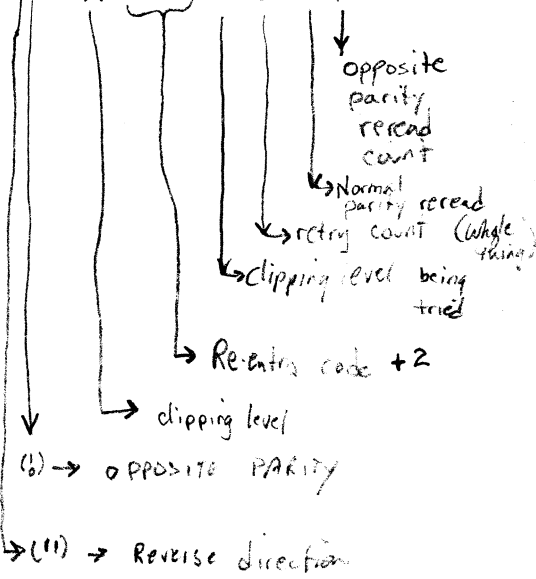 opposite
parity
reread
count
Normal
parity reread
retry count (whole
thing)
Clipping level being
tried
Re-entry code +2
clipping level
→ OPPOSITE PARITY
(11) → Reverse direction